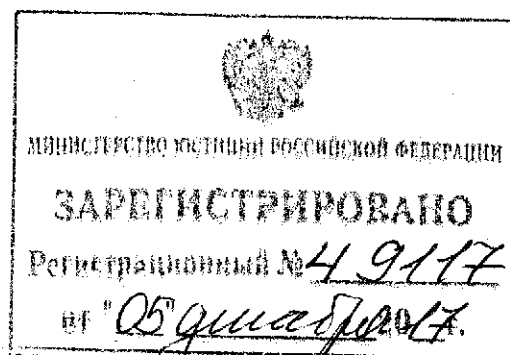 МИНИСТЕРСТВО ЮСТИЦИИ РОССИЙСКОЙ ФЕДЕРАЦИИ
ЗАРЕГИСТРИРОВАНО
Регистрационный № 49117
от "05" декабря 2017.